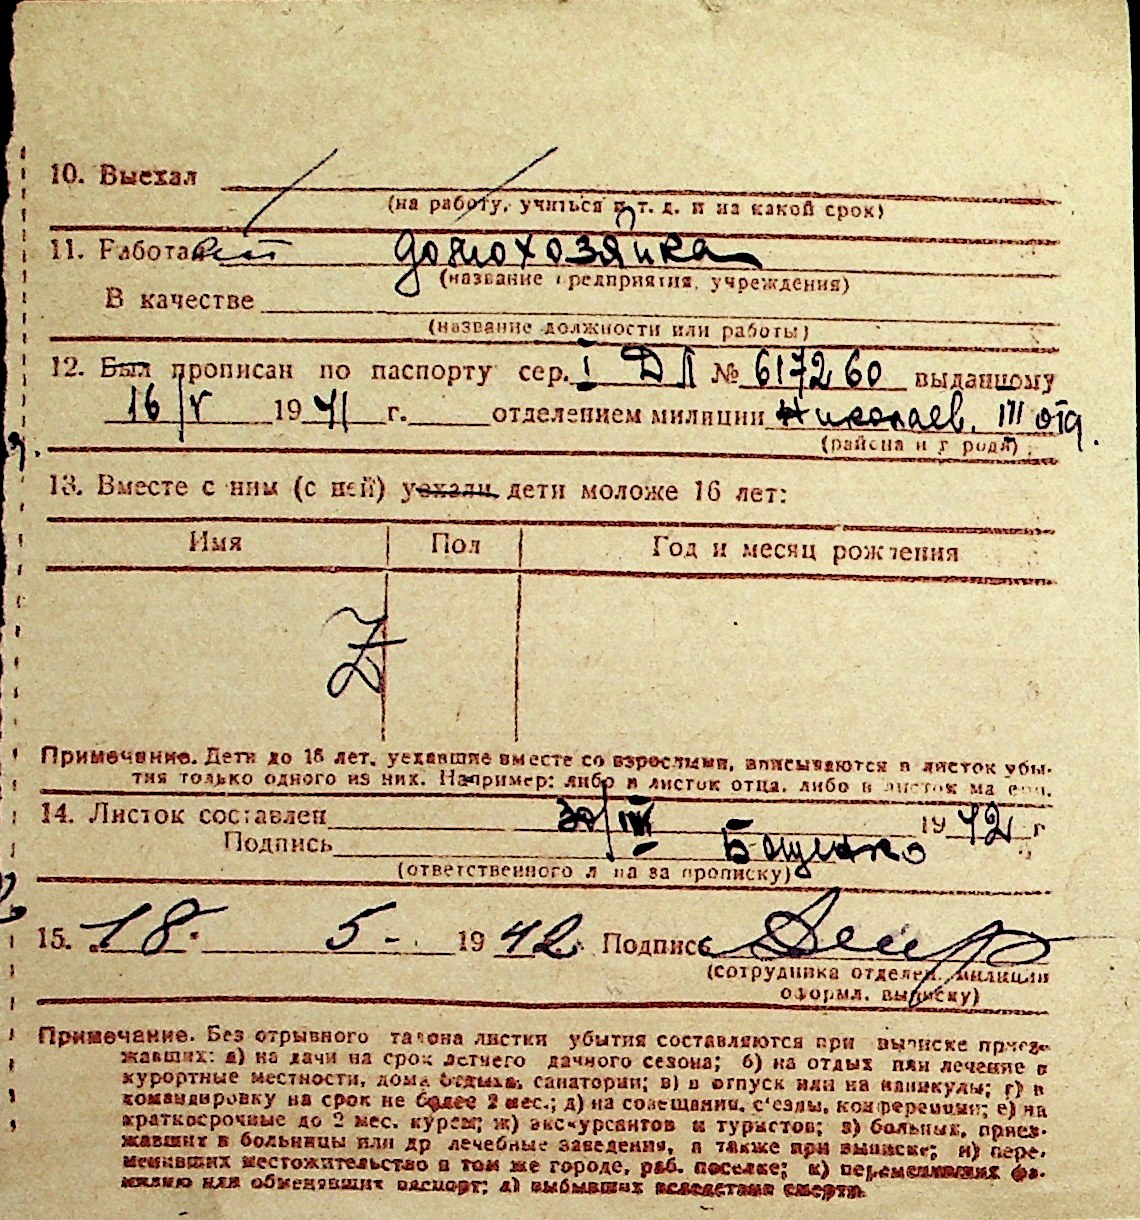 10. Выехал
(на работу, учиться и т. д. и на какой срок)
11. Работает домохозяйка
(название предприятия, учреждения)
В качестве
(название должности или работы)
12. Был прописан по паспорту сер. I ДЛ № 617260 выданному
16/V 1941 г. отделением милиции Николаев. III отд.
(района и города)
13. Вместе с ним (с ней) уехали дети моложе 16 лет:
Имя Пол Год и месяц рождения
Z
Примечание. Дети до 16 лет, уехавшие вместе со взрослыми, вписываются в листок убы-
тия только одного из них. Например: либо в листок отца, либо в листок матери.
14. Листок составлен 30/III 1942 г
Подпись
(ответственного лица за прописку)
15. 18. 5 - 1942. Подпись
(сотрудника отделен. милиции
оформл. выписку)
Примечание. Без отрывного талона листки убытия составляются при выписке приез-
жавших: а) на дачи на срок летнего дачного сезона; б) на отдых или лечение в
курортные местности, дома отдыха, санатории; в) в отпуск или на каникулы; г) в
командировку на срок не более 2 мес.; д) на совещания, с'езды, конференции; е) на
краткосрочные до 2 мес. курсы; ж) экскурсантов и туристов; з) больных, приез-
жавших в больницы или др лечебные заведения, а также при выписке; и) пере-
менивших местожительство в том же городе, раб. поселке; к) переменивших фа-
милию или обменявших паспорт; л) выбывших вследствие смерти.